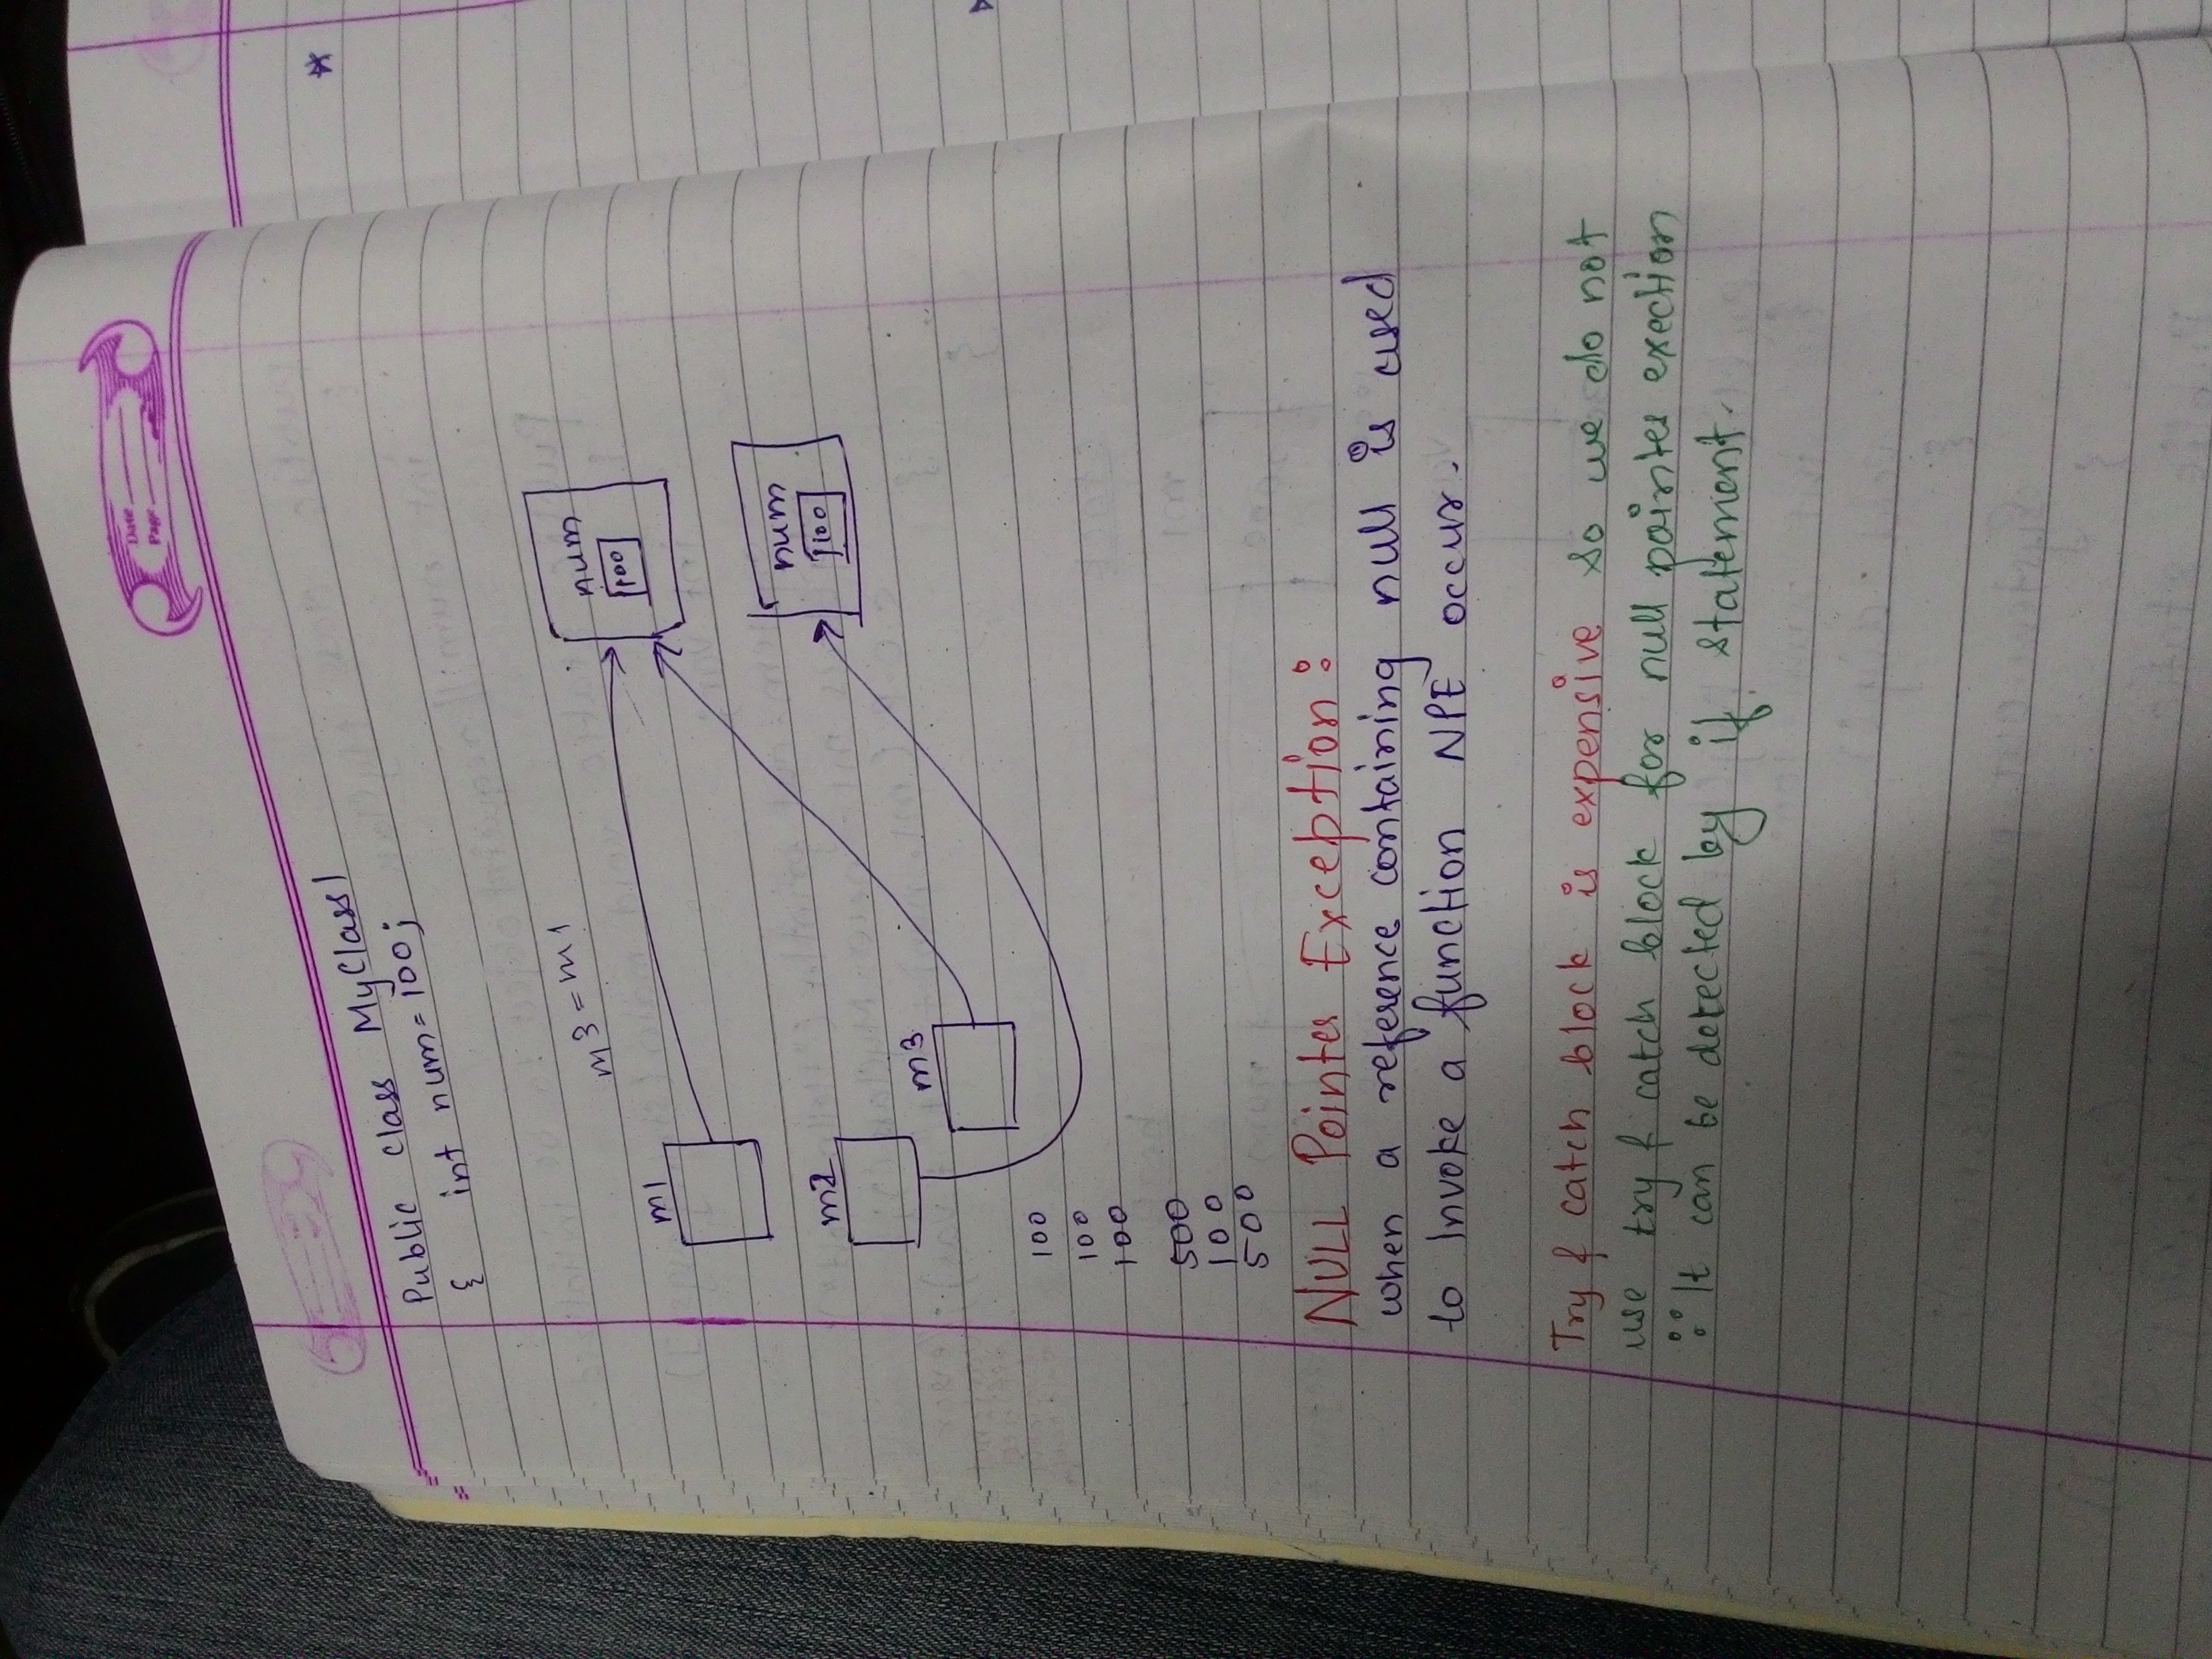 Date
Page
Public class MyClass1
{ int num=100;
m3=m1
num
100
m1
num
100
m2
m3
100
100
100
500
100
500
NULL Pointer Exception:
when a reference containing null is used
to Invoke a function NPE occur.
Try & catch block is expensive so we do not
use try & catch block for null pointer exection
∵ It can be detected by if statement.